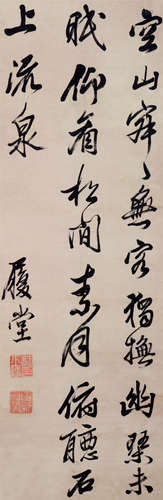 空山寂〻無客獨撫幽琴未
眠仰看松間素月俯聽石
上流泉
履堂